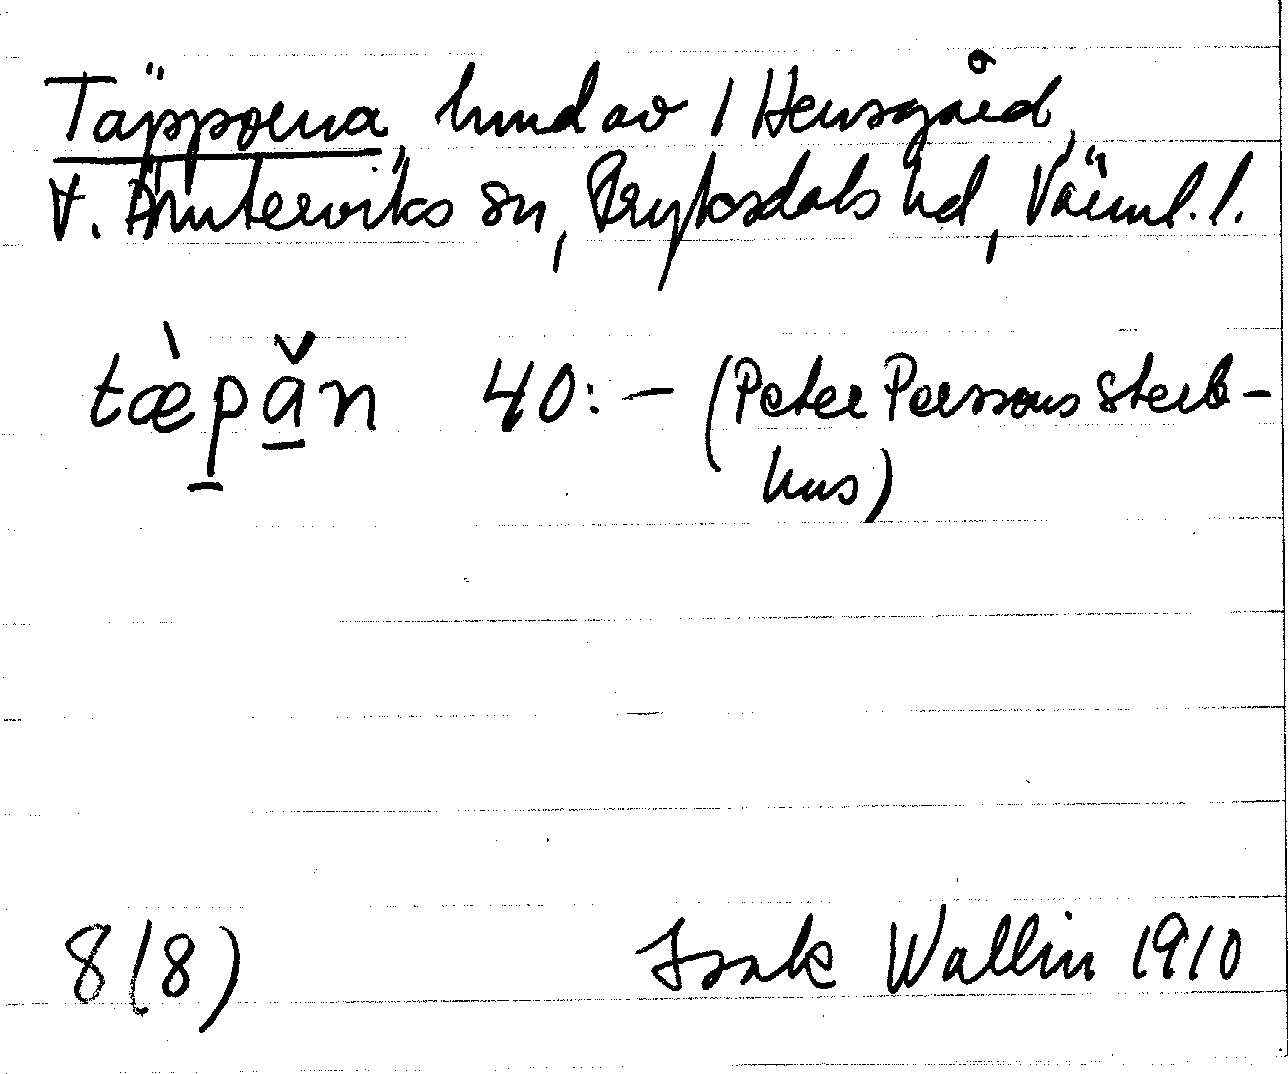 Täpporna, hmd av 1 Hensgård,
V. Ämterviks sn, Fryksdals hd, Värml. l.
tæ̀p̱ǎ̱n 40:- (Peter Perssons sterb-
hus)
8(8) Isak Wallin 1910